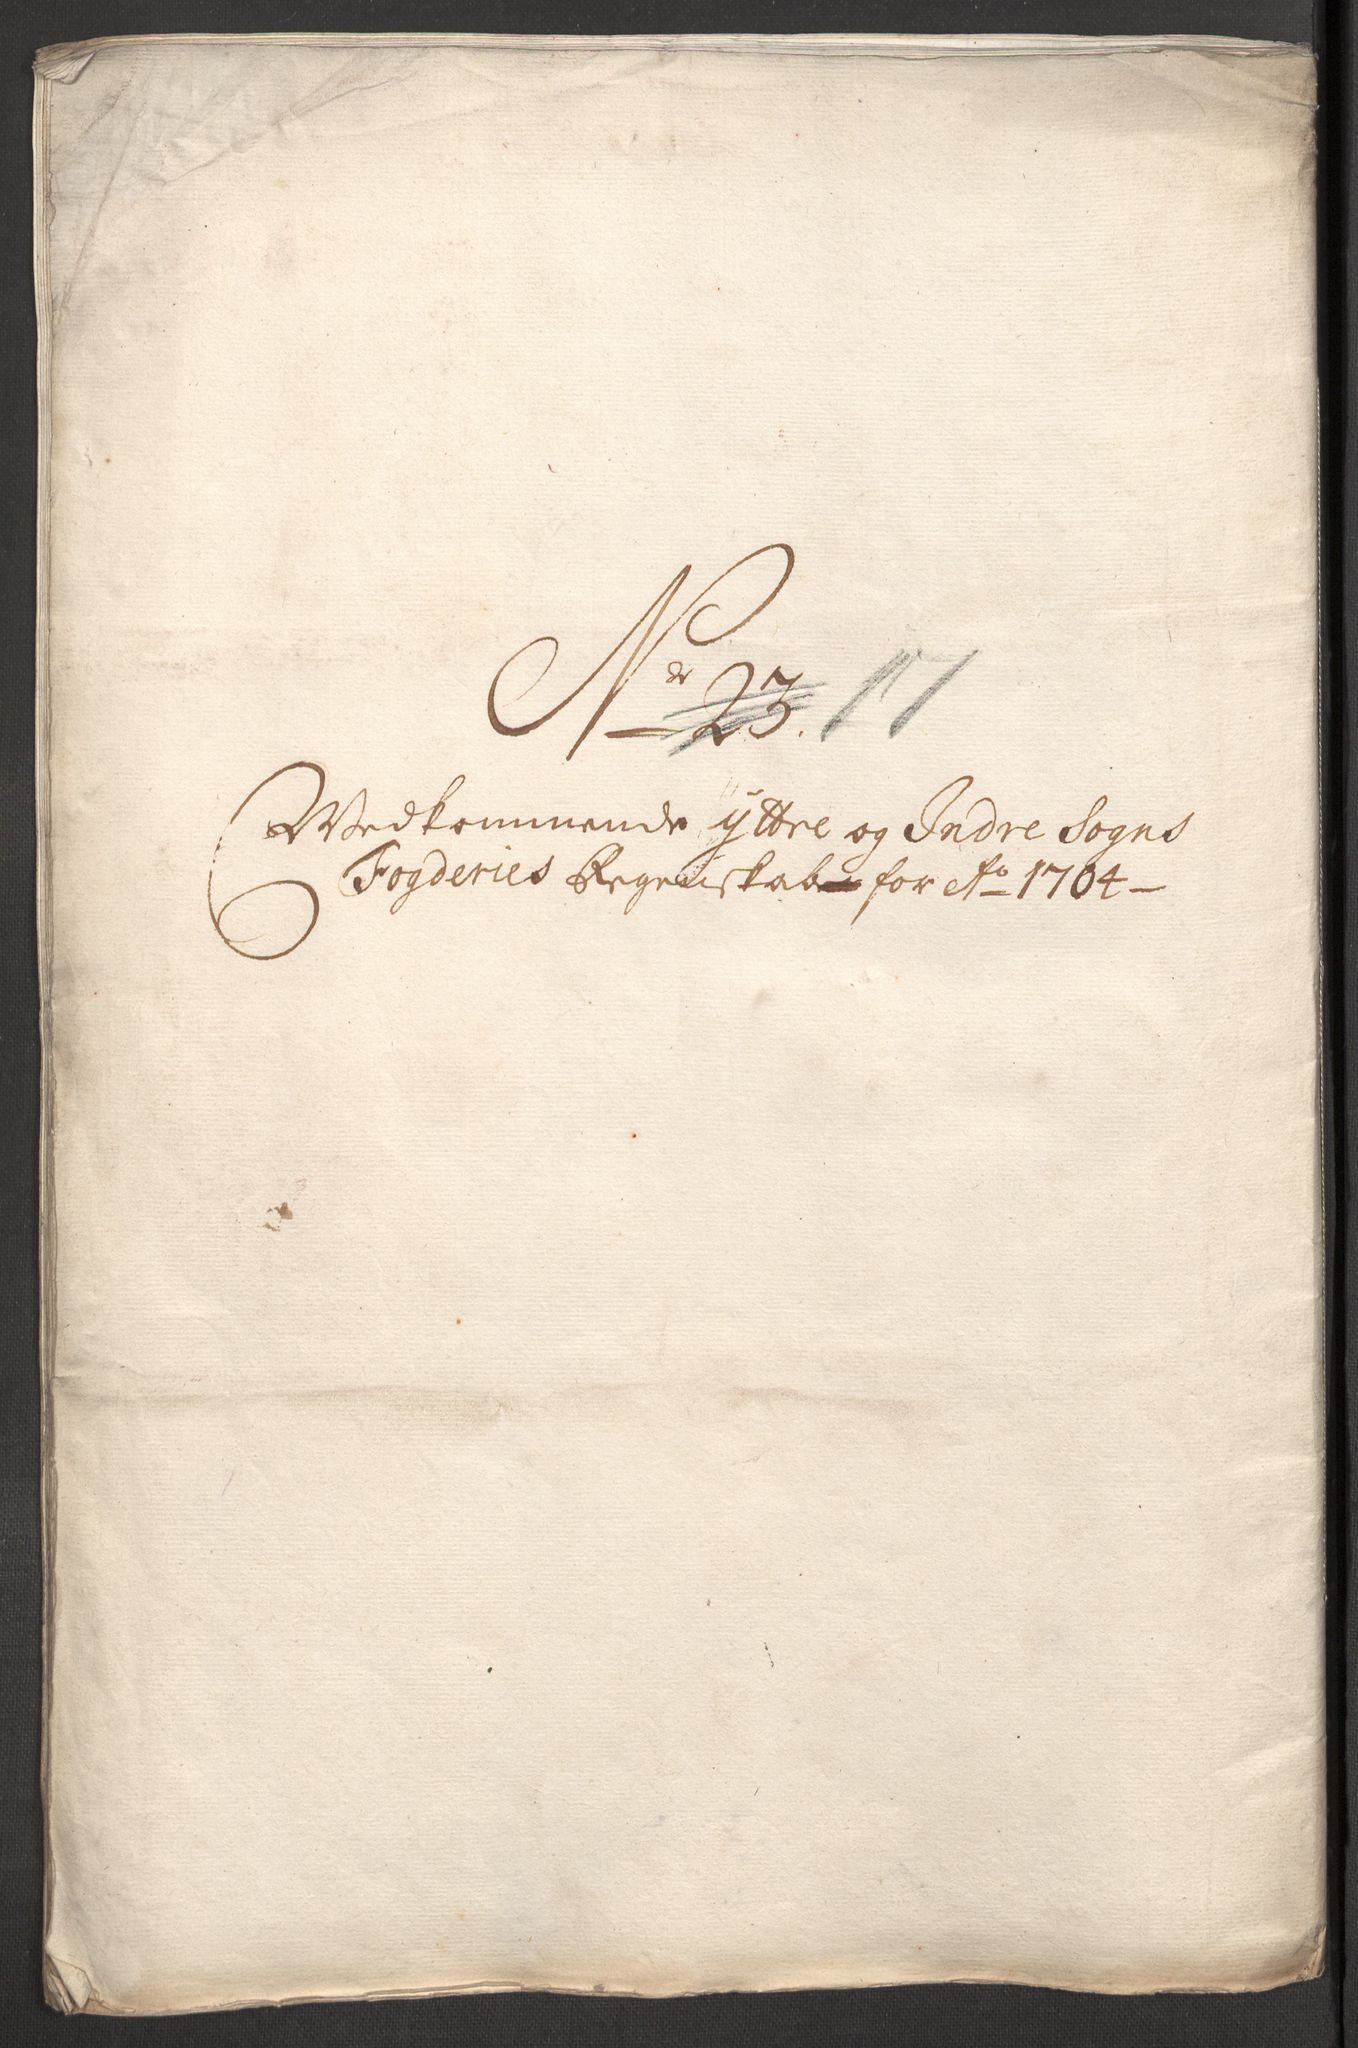 Nr 23. 17
Vedkommende ÿttre og Indre Sogns
Fogderies Regenskab for Ao 1704